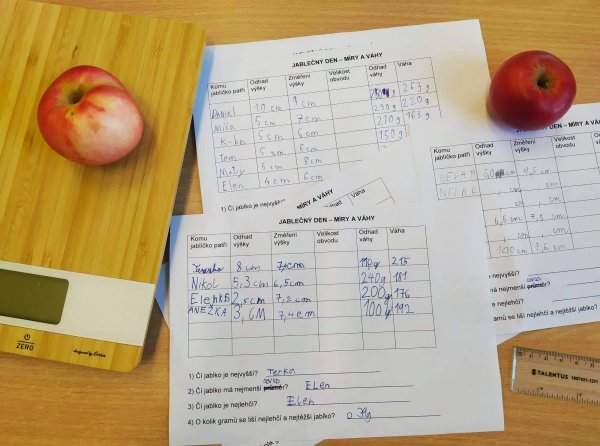 JABLEČNÝ DEN – MÍRY A VÁHY
Komu jablíčko patří Odhad výšky Změření výšky Velikost obvodu Odhad váhy Váha
10 cm 9 cm 263 g
Míša 5 cm 7 cm 290 g 220 g
Kuba 5 cm 6 cm 210 g 163 g
Tom 5 cm 6 cm 150 g
Maty 5 cm 8 cm
Elen 4 cm 6 cm
1) Čí jablko je nejvyšší?
MÍRY A VÁHY
Odhad váhy Váha
JABLEČNÝ DEN – MÍRY A VÁHY
Komu jablíčko patří Odhad výšky Změření výšky Velikost obvodu Odhad váhy Váha
Terezka 8 cm 7,1 cm 110 g 215
Nikol 5,3 cm 6,5 cm 240 g 181
2,5 cm 7,2 cm 200 g 176
ANEŽKA 3,6M 7,4 cm 100 g 192
1) Čí jablko je nejvyšší? Terka
2) Čí jablko má nejmenší průměr? obvod Elen
3) Čí jablko je nejlehčí? Elen
4) O kolik gramů se liší nejlehčí a nejtěžší jablko? o 39g
Komu jablíčko patří Odhad výšky Změření výšky Velikost obvodu
cm 4,5 cm
, cm , cm
, cm , cm
6,5 cm 7,5 cm
, cm , cm
cm 7,6 cm
nejvyšší?
má nejmenší průměr? obvod
je nejlehčí?
gramů se liší nejlehčí a nejtěžší jablko?
ZERO
TALENTUS